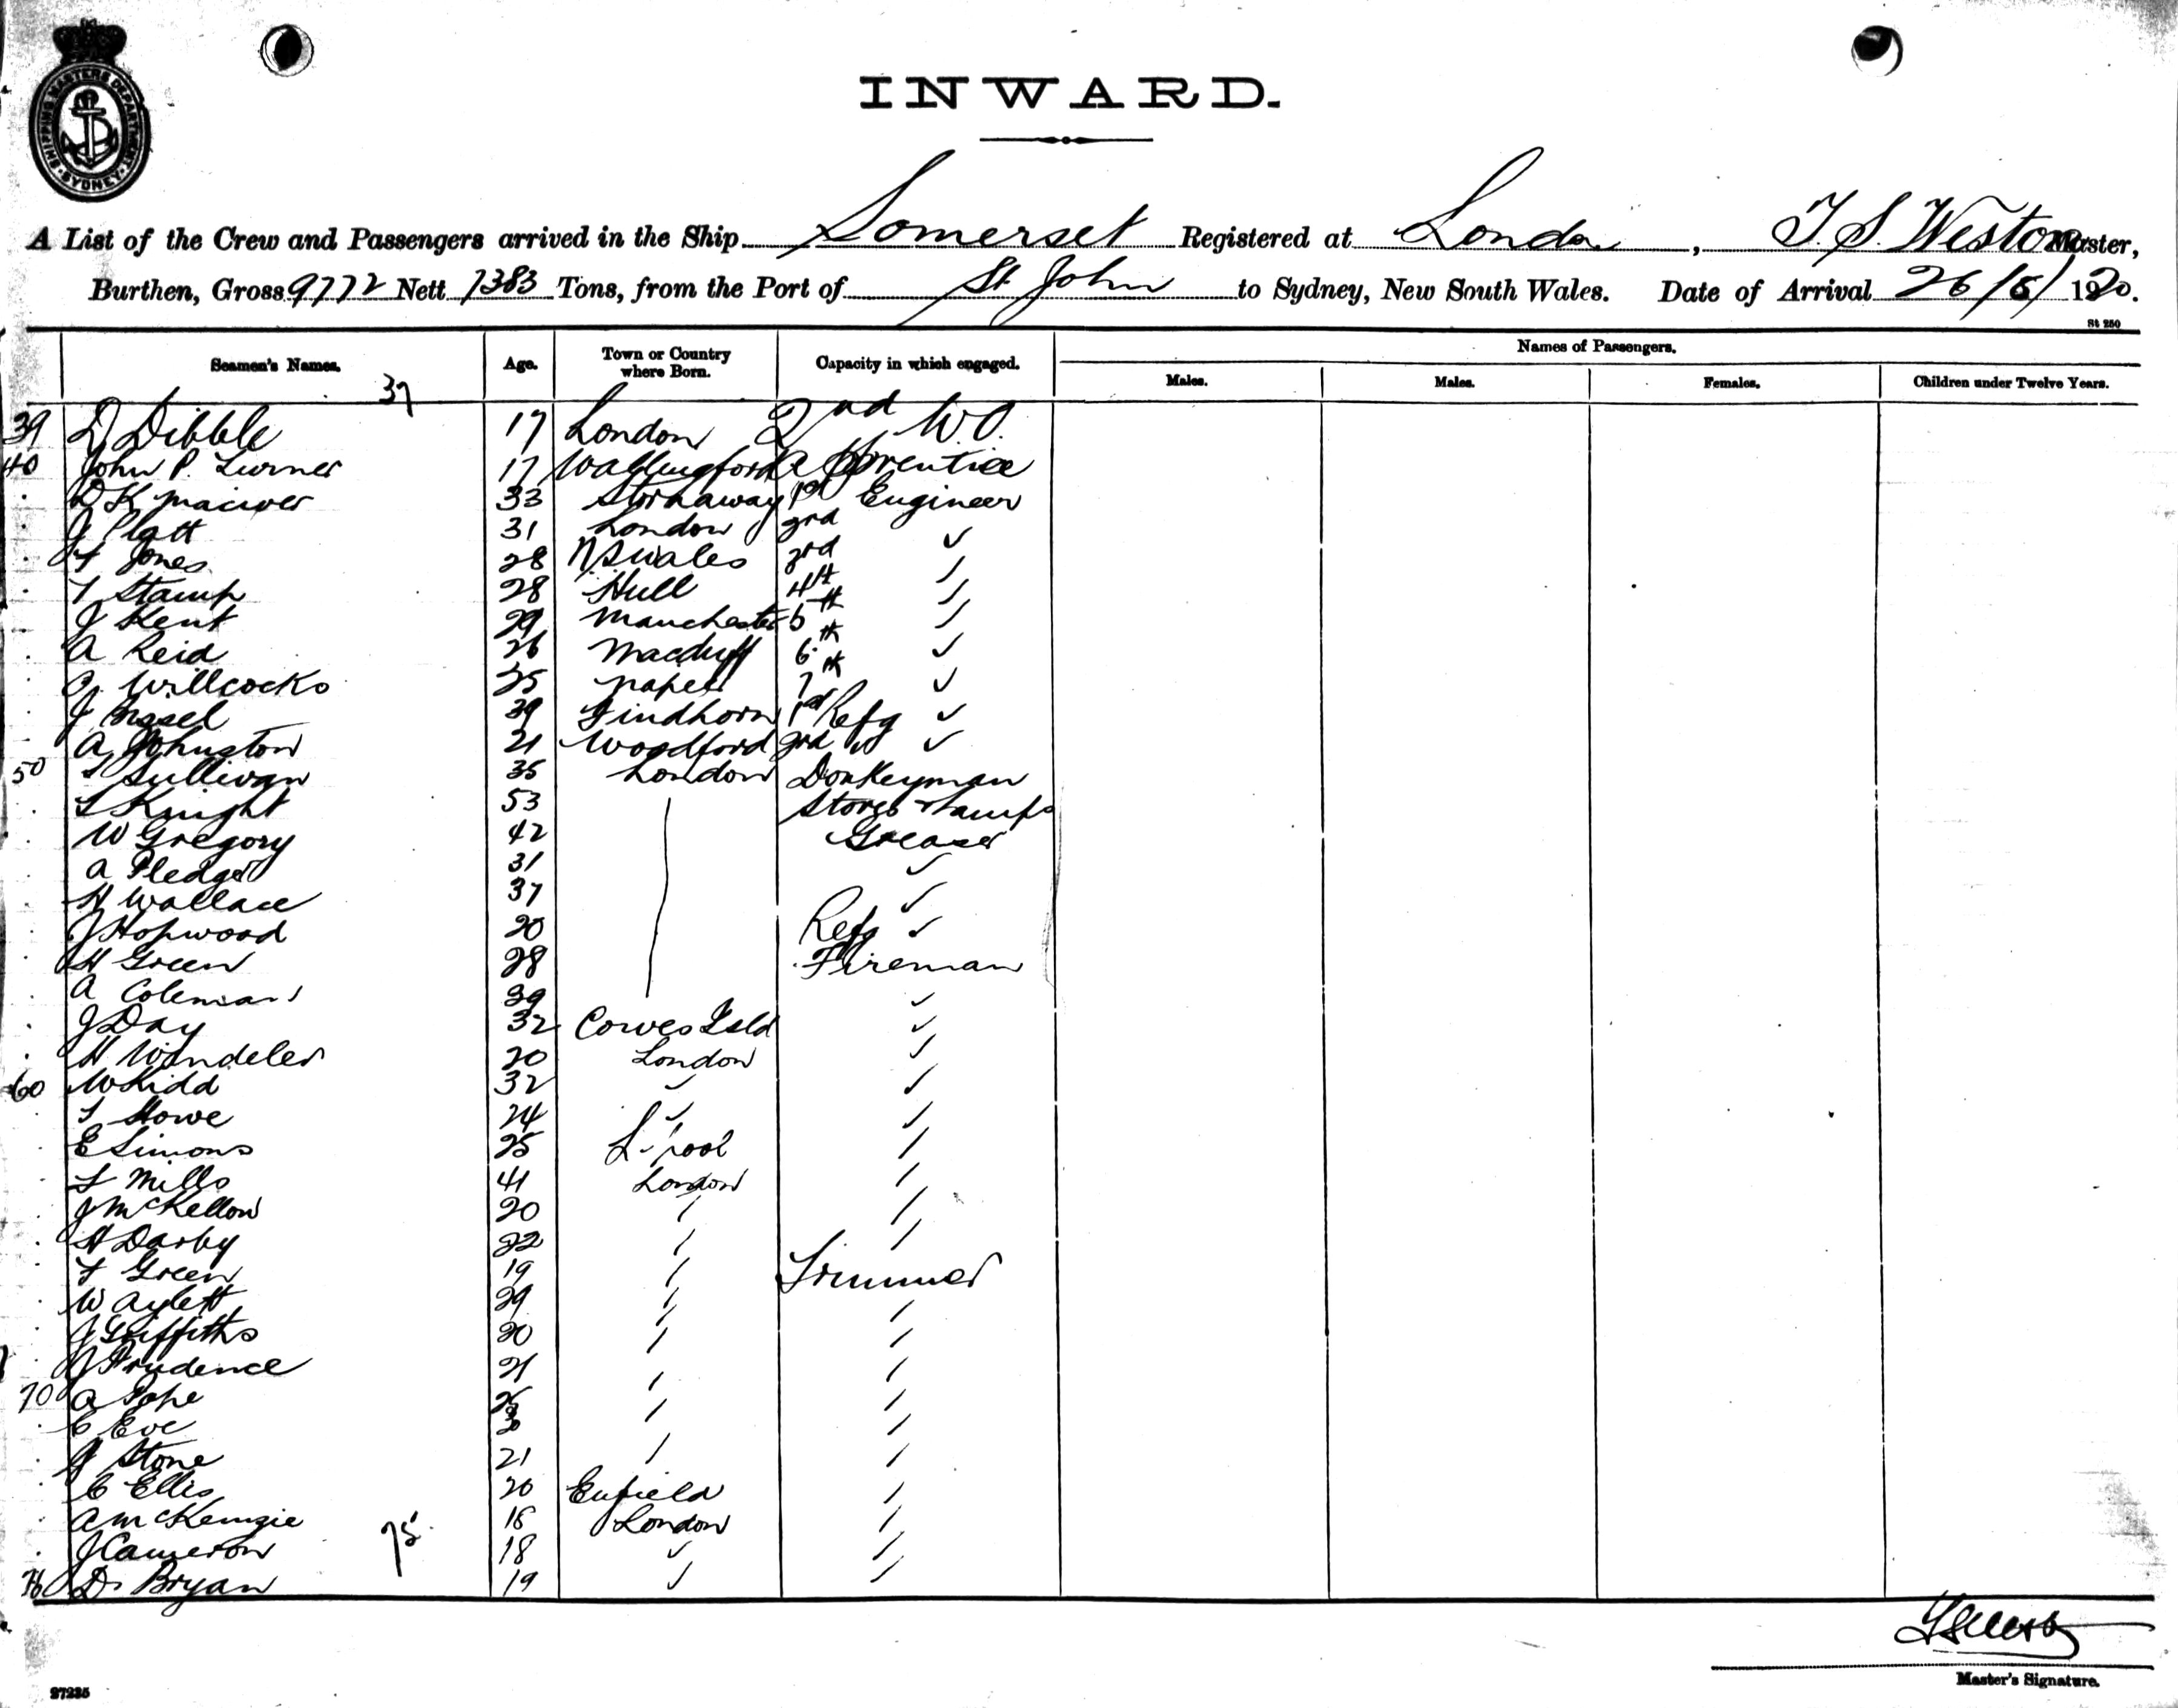 SHIPPING MASTERS DEPARTMENT
SYDNEY
INWARD.
A List of the Crew and Passengers arrived in the Ship Somerset Registered at London, T. S. Weston Master,
Burthen, Gross 9772 Nett 7383 Tons, from the Port of St John to Sydney, New South Wales. Date of Arrival 26/6/1920.
St 250
Seamen's Names. Age. Town or Country where Born. Capacity in which engaged. Names of Passengers.
Males. Males. Females. Children under Twelve Years.
39
39 D Dibble 17 London 2nd W.O.
40 John P. Turner 17 Wallingford Apprentice
D K Maciver 33 Stornaway 1st Engineer
J Platt 31 London 2nd ✓
Jones 28 N S Wales 3rd
T Stamp 28 Hull 4th
J Kent 29 Manchester 5th
A Reid 26 Macduff 6th ✓
Willcocks 25 Napier 7th ✓
J 39 Findhorn 1st Refg ✓
A Johnston 21 Woodford 2nd ✓
50 Sullivan 35 London Donkeyman
Knight 53 Stores & Lamps
W Gregory 42 Greaser
A Pledger 31 ✓
H Wallace 37 ✓
J Hopwood 20 Refg ✓
H Green 28 Fireman
A Coleman 39 ✓
J Day 32 Cowes Isld ✓
H Windeler 20 London ✓
60 W Kidd 32 ✓ ✓
Howe 24 ✓
E Simons 25 L'pool
Mills 41 London
J McKellow 20
H Darby 22
F Green 19 Trimmer
W Aylett 29
J Griffiths 20
J Prudence 21
70 A Pope
C Eve
J Stone 21
C Ellis 20 Enfield
A McKenzie 18 London
75
J Cameron 18 ✓
76 D. Bryan 19 ✓
Master's Signature.
27235